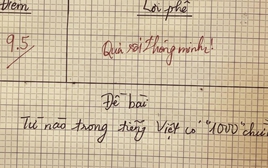 Điểm
Lời phê
9.5
Quá rồi thông minh!
Đề bài
Từ nào trong tiếng Việt có "1000" chữ